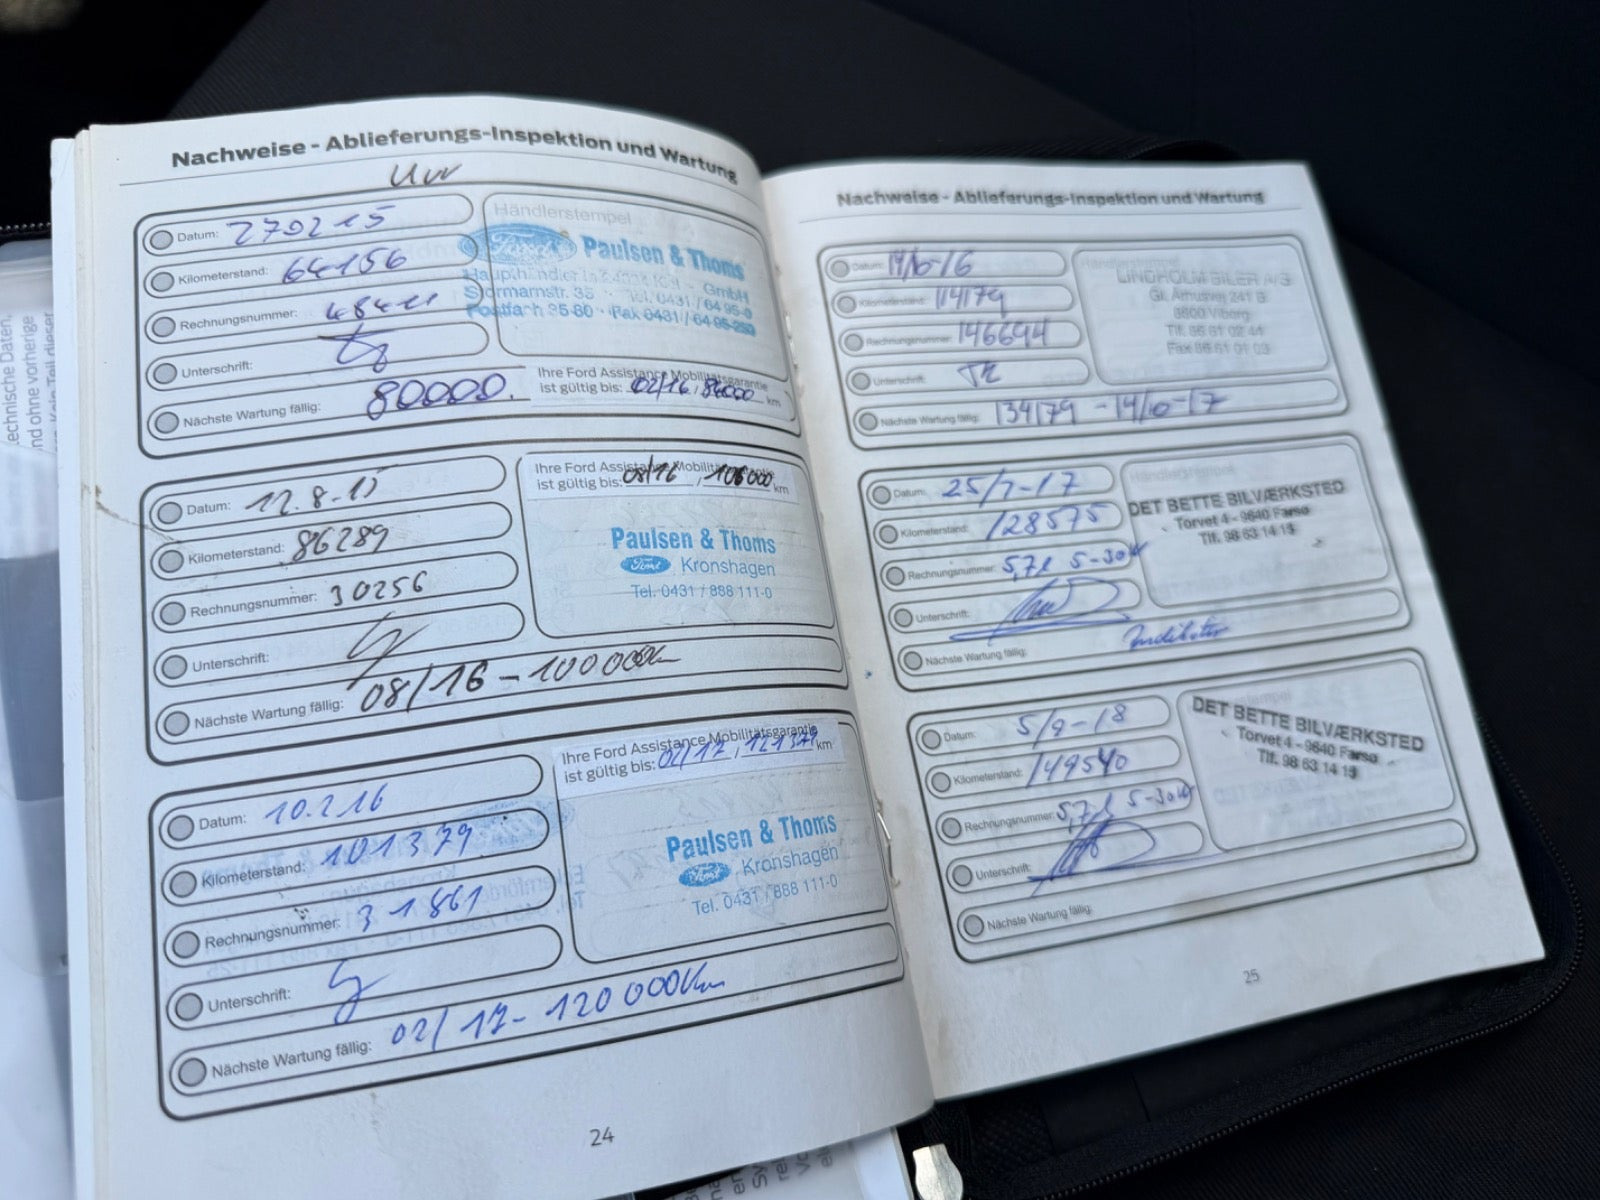 Nachweise - Ablieferungs-Inspektion und Wartung
Datum: 270215
Kilometerstand: 64156
Rechnungsnummer: 48411
Unterschrift:
Nächste Wartung fällig: 80000.
Händlerstempel
Ford Paulsen & Thoms
Stormarnstr. 35 · Tel. 0431 / 64 95-0
Postfach 35 80 ·
Ihre Ford Assistance Mobilitätsgarantie
ist gültig bis: 02/16, 84000 km
Datum: 12.8.15
Kilometerstand: 86289
Rechnungsnummer: 30256
Unterschrift:
Nächste Wartung fällig: 08/16 - 100 000 Km
Ihre Ford Assistance Mobilitätsgarantie
ist gültig bis: 08/16, 106000 km
Paulsen & Thoms
Ford Kronshagen
Tel. 0431 / 888 111-0
Datum: 10.2.16
Kilometerstand: 101379
Rechnungsnummer: 31861
Unterschrift:
Nächste Wartung fällig: 02/17 - 120 000 Km
Ihre Ford Assistance Mobilitätsgarantie
ist gültig bis: 02/17, 121379 km
Paulsen & Thoms
Ford Kronshagen
Tel. 0431 / 888 111-0
24
Nachweise - Ablieferungs-Inspektion und Wartung
Datum: 14/10-16
Kilometerstand: 114179
Rechnungsnummer: 146694
Unterschrift:
Nächste Wartung fällig: 134179 - 14/10-17
LINDHOLM BILER A/S
Gl. Århusvej 241 B
8800 Viborg
Tlf. 86 61 02 44
Fax 86 61 01 03
Datum: 25/7-17
Kilometerstand: 128575
Rechnungsnummer: 5,7 l 5-30W
Unterschrift:
Nächste Wartung fällig: Indikator
Händlerstempel
DET BETTE BILVÆRKSTED
Torvet 4 - 9640 Farsø
Tlf. 98 63 14 15
Datum: 5/9-18
Kilometerstand: 149540
Rechnungsnummer: 5,7 l 5-30W
Unterschrift:
Nächste Wartung fällig:
DET BETTE BILVÆRKSTED
Torvet 4 - 9640 Farsø
Tlf. 98 63 14 15
25